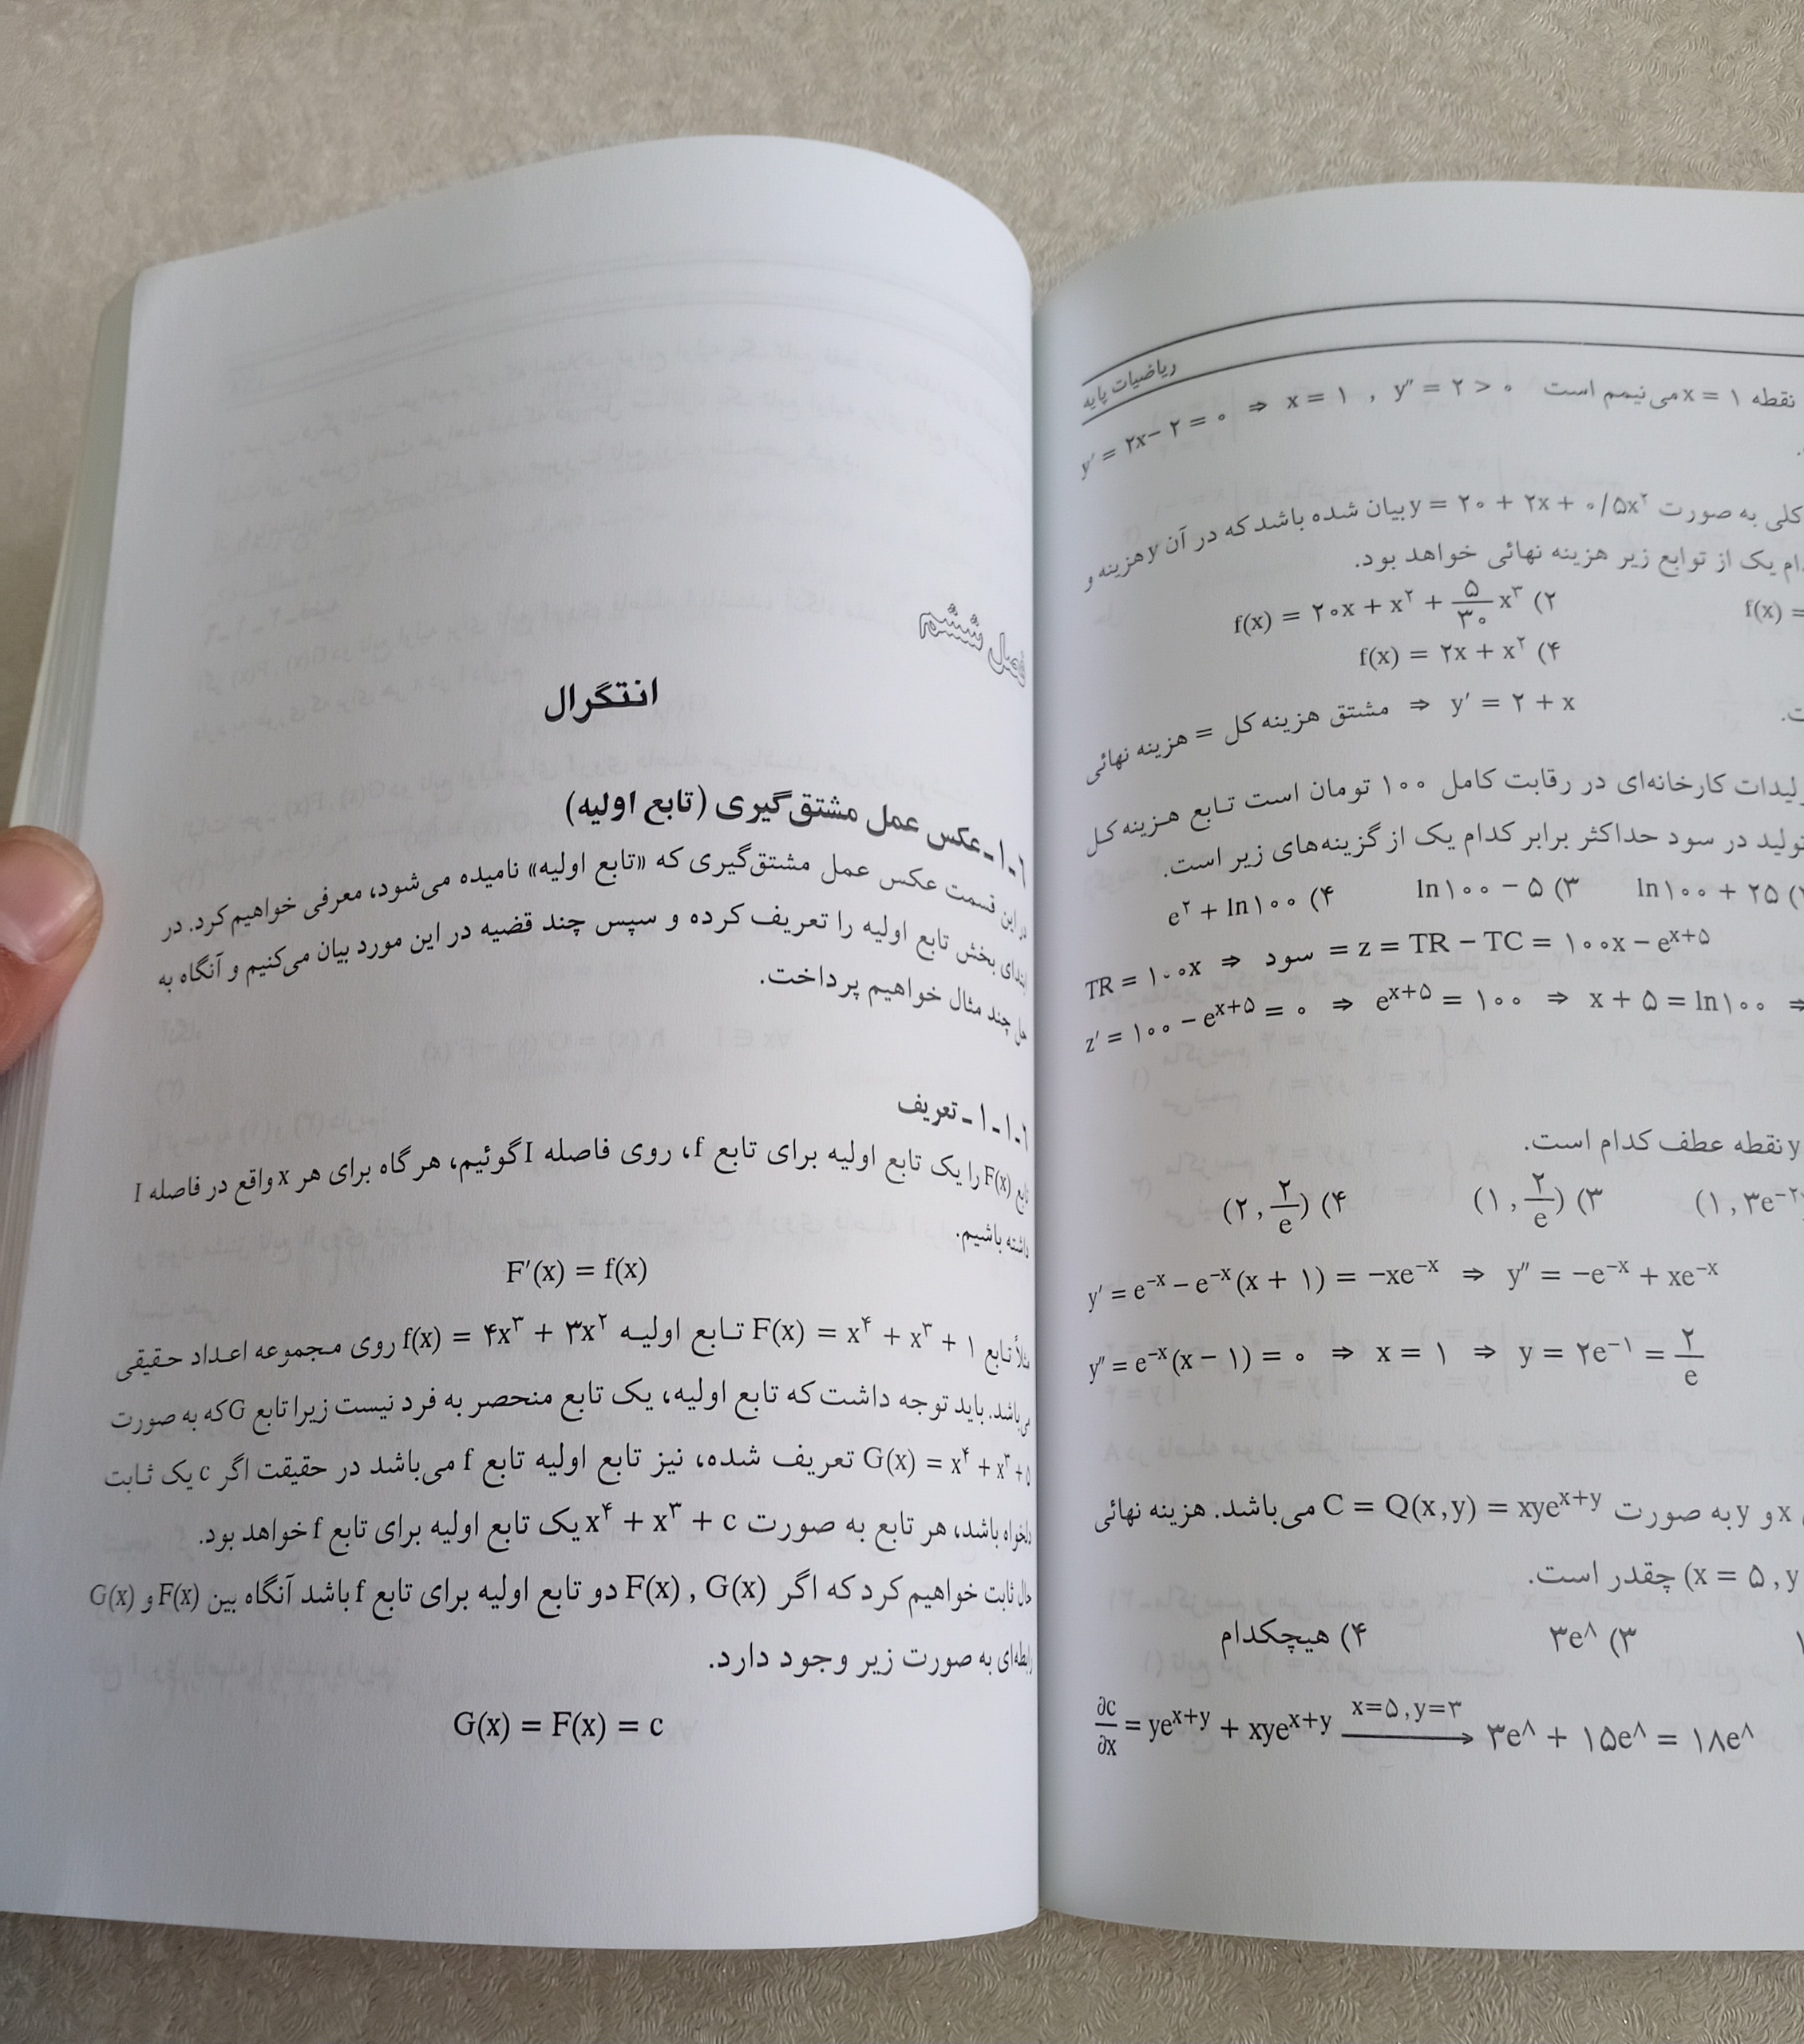 ریاضیات پایه
y′ = ۲x − ۲ = ۰ ⇒ x = ۱ , y″ = ۲ > ۰ نقطه x = ۱ می‌نیمم است
کلی به صورت y = ۲۰ + ۲x + ۰/۵x² بیان شده باشد که در آن y هزینه و
یک از توابع زیر هزینه نهائی خواهد بود.
f(x) =
۲) f(x) = ۲۰x + x² + ۵/۳۰ x³
۴) f(x) = ۲x + x²
هزینه نهائی = مشتق هزینه کل ⇒ y′ = ۲ + x
کارخانه‌ای در رقابت کامل ۱۰۰ تومان است تابع هزینه کل
تولید در سود حداکثر برابر کدام یک از گزینه‌های زیر است.
ln۱۰۰ + ۲۵ ۳) ln۱۰۰ − ۵ ۴) e² + ln۱۰۰
TR = ۱۰۰x ⇒ سود = z = TR − TC = ۱۰۰x − e^(x+۵)
z′ = ۱۰۰ − e^(x+۵) = ۰ ⇒ e^(x+۵) = ۱۰۰ ⇒ x + ۵ = ln۱۰۰ ⇒
y نقطه عطف کدام است.
۳) (۱ , ۲/e) ۴) (۲ , ۲/e)
y′ = e^(−x) − e^(−x)(x + ۱) = −xe^(−x) ⇒ y″ = −e^(−x) + xe^(−x)
y″ = e^(−x)(x − ۱) = ۰ ⇒ x = ۱ ⇒ y = ۲e^(−۱) = ۲/e
x و y به صورت C = Q(x,y) = xye^(x+y) می‌باشد. هزینه نهائی
(x = ۵ , y چقدر است.
۳) ۳e^۸ ۴) هیچکدام
∂c/∂x = ye^(x+y) + xye^(x+y) x=۵ , y=۳ → ۳e^۸ + ۱۵e^۸ = ۱۸e^۸
فصل ششم
انتگرال
۶ـ۱ـ عکس عمل مشتق‌گیری (تابع اولیه)
در این قسمت عکس عمل مشتق‌گیری که «تابع اولیه» نامیده می‌شود، معرفی خواهیم کرد. در
ابتدای بخش تابع اولیه را تعریف کرده و سپس چند قضیه در این مورد بیان می‌کنیم و آنگاه به
حل چند مثال خواهیم پرداخت.
۶ـ۱ـ۱ـ تعریف
تابع F(x) را یک تابع اولیه برای تابع f، روی فاصله I گوئیم، هرگاه برای هر x واقع در فاصله I
داشته باشیم.
F′(x) = f(x)
مثلاً تابع F(x) = x⁴ + x³ + ۱ تابع اولیه f(x) = ۴x³ + ۳x² روی مجموعه اعداد حقیقی
می‌باشد. باید توجه داشت که تابع اولیه، یک تابع منحصر به فرد نیست زیرا تابع G که به صورت
G(x) = x⁴ + x³ + ۵ تعریف شده، نیز تابع اولیه تابع f می‌باشد در حقیقت اگر c یک ثابت
دلخواه باشد، هر تابع به صورت x⁴ + x³ + c یک تابع اولیه برای تابع f خواهد بود.
حال ثابت خواهیم کرد که اگر F(x) , G(x) دو تابع اولیه برای تابع f باشد آنگاه بین F(x) و G(x)
رابطه‌ای به صورت زیر وجود دارد.
G(x) = F(x) = c